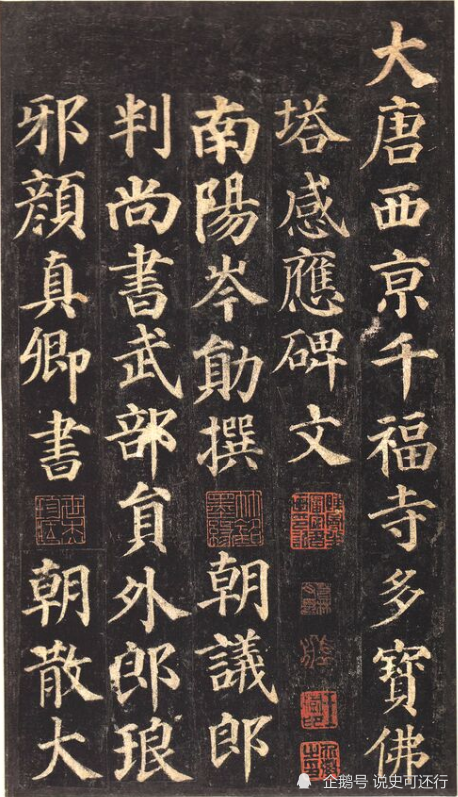 大唐西京千福寺多寶佛
塔感應碑文
南陽岑勛撰 朝議郎
判尚書武部員外郎琅
邪顏真卿書 朝散大
企鹅号 说史可还行